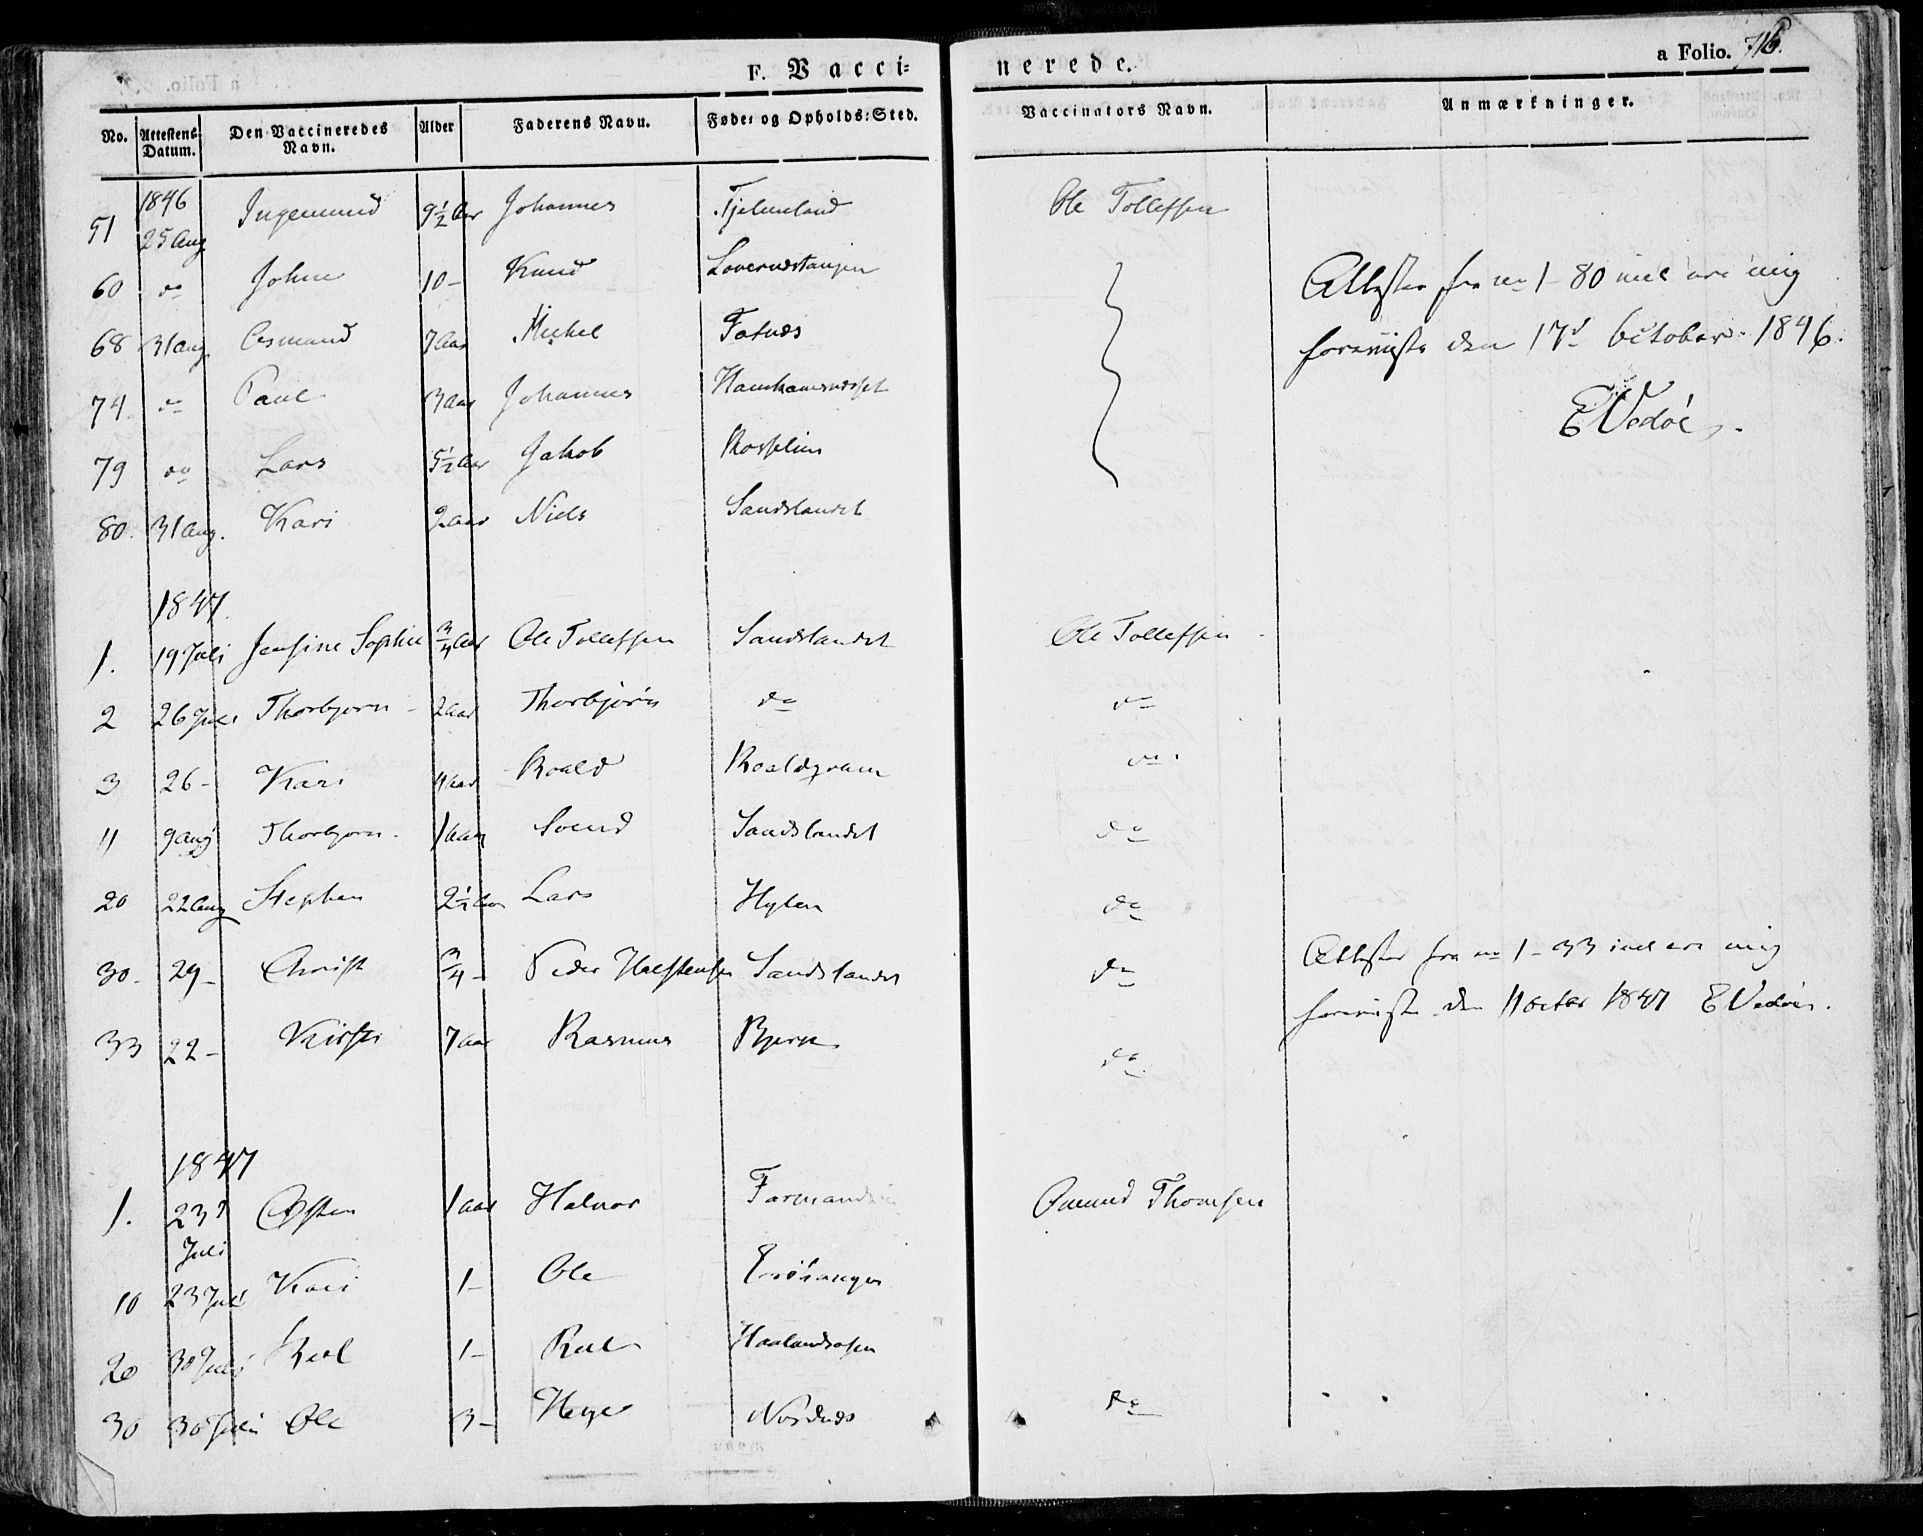 F. Vacci=
nerede.
a Folio. 716.
No. Attestens Datum. Den Vaccineredes Navn. Alder Faderens Navn. Føde= og Opholds=Sted. Vaccinators Navn. Anmærkninger.
1846
51 25 Aug Ingemund 9½ Aar Johannes Tjelmeland Ole Tollefsen
60 do John 10 – Knud
68 31 Aug Asmund 7 Aar Mickel Fatnes
74. do Paul 3 aar Johannes
79 do Lars 5½ Aar Jakob
80. 31 Aug. Kari 2 aar Niels Sandslandet
Attester fra no 1 – 80 incl ere mig
foreviiste den 17d October 1846.
E Vedøe.
1847.
1. 19 Juli Jensine Sophie ¾ Aar Ole Tollefsen Sandslandet Ole Tollefsen
2 26 Juli Thorbjørn 2 aar Thorbjørn do do
3 26 – Kari 4 aar Roald Roaldqvam do
11 9 Aug Thorbjørn 1 aar Svend Sandslandet do
20 22 Aug Stephen 2½ Aar Lars Hylen do
30. 29 – Christ ¾ – Peder Halstensen Sandslandet do
33 22 – Kirsti 7 aar Rasmus do
Attester fra no 1 – 33 incl ere mig
foreviiste den 11 octbr 1847 E Vedøe.
1847
1. 23d Juli Østen 1 aar Halvor Farmandsv Omund Thomsen
10 23 Juli Kari 1 – Ole
20 30 Juli 1 – Haalandsosen
30 30 Juli Ole 3 – Helge Nordnes do